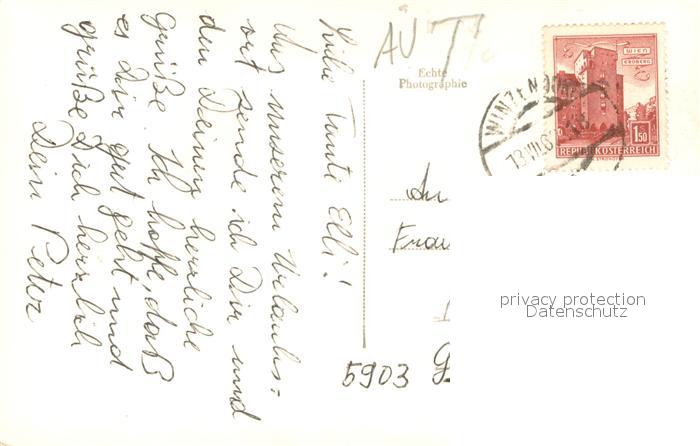 Liebe Tante Elli!
Aus unserem Urlaubs-
ort sende ich Dir und
den Deinen herzliche
Grüße. Ich hoffe, daß
es Dir gut geht und
grüße Dich herzlich
Dein Peter
AU
Echte
Photographie
WIEN
ERDBERG
1.50
REPUBLIK ÖSTERREICH
WINZEND
13.VII.6
An
Frau
5903
privacy protection
Datenschutz